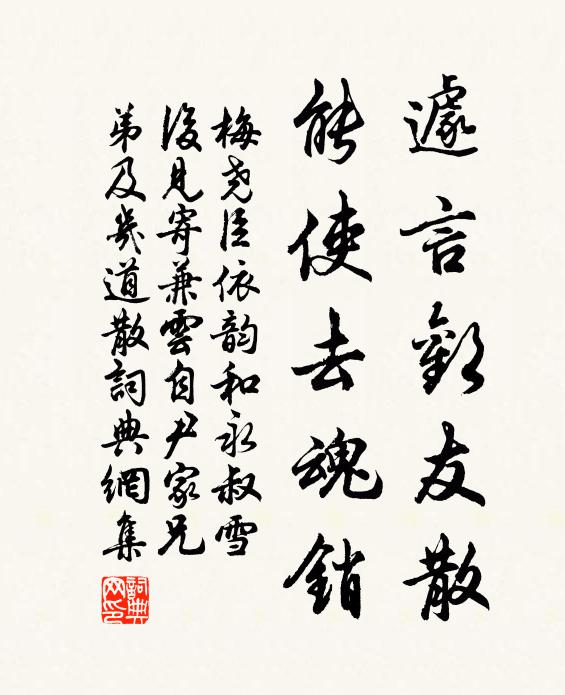 遽言歡友散
能使去魂銷
梅堯臣依韵和永叔雪
後見寄兼雲自尹家兄
弟及幾道散詞典網集
詞典
网印